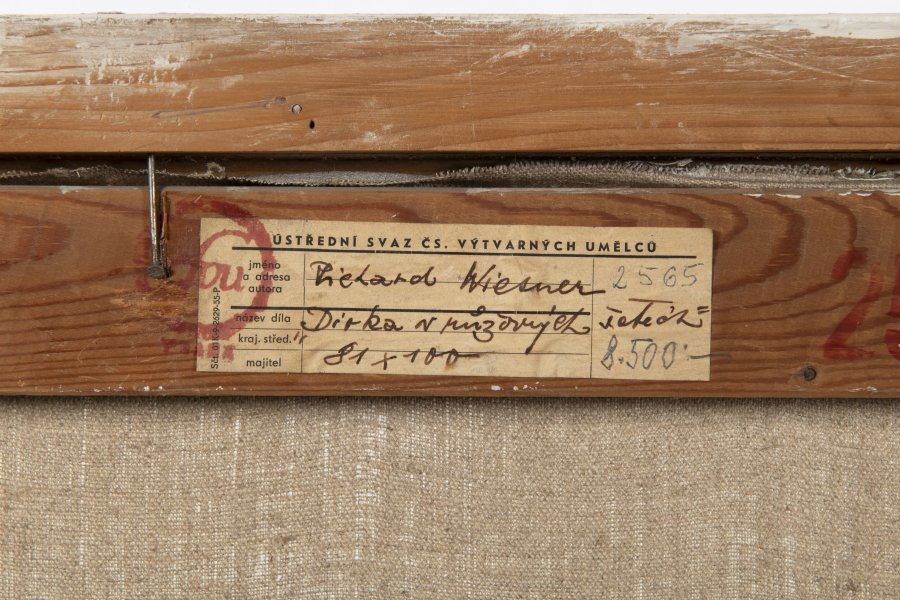 ÚSTŘEDNÍ SVAZ ČS. VÝTVARNÝCH UMĚLCŮ
jméno a adresa autora Richard Wiesner 2565
název díla Dívka v růžových šatech"
kraj. střed. "
majitel 81 x 100 8.500:-
Sčt. 01K-9-2629-55-P
25